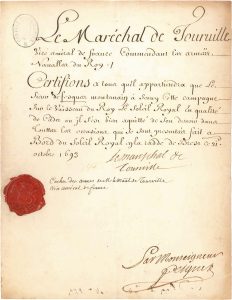 Le Maréchal de Tourville
Vice amiral de france Commandant Les armées
Navalles du Roy
Certifions a tous qu'il appartiendra que Le
Sieur de montanais a servy Cette campagne
Sur le Vaisseau du Roy Le Soleil Royal en qualité
de Cadre ou il s'est bien aquitté de Son devoir dans
touttes Les occasions que se sont presentéz fait a
Bord du Soleil Royal a la radde de le 21
octobre 1693
Le mareschal de
tourville
Cachet des armes du M.al de Tourville
Vice amiral de france
Par Monseigneur